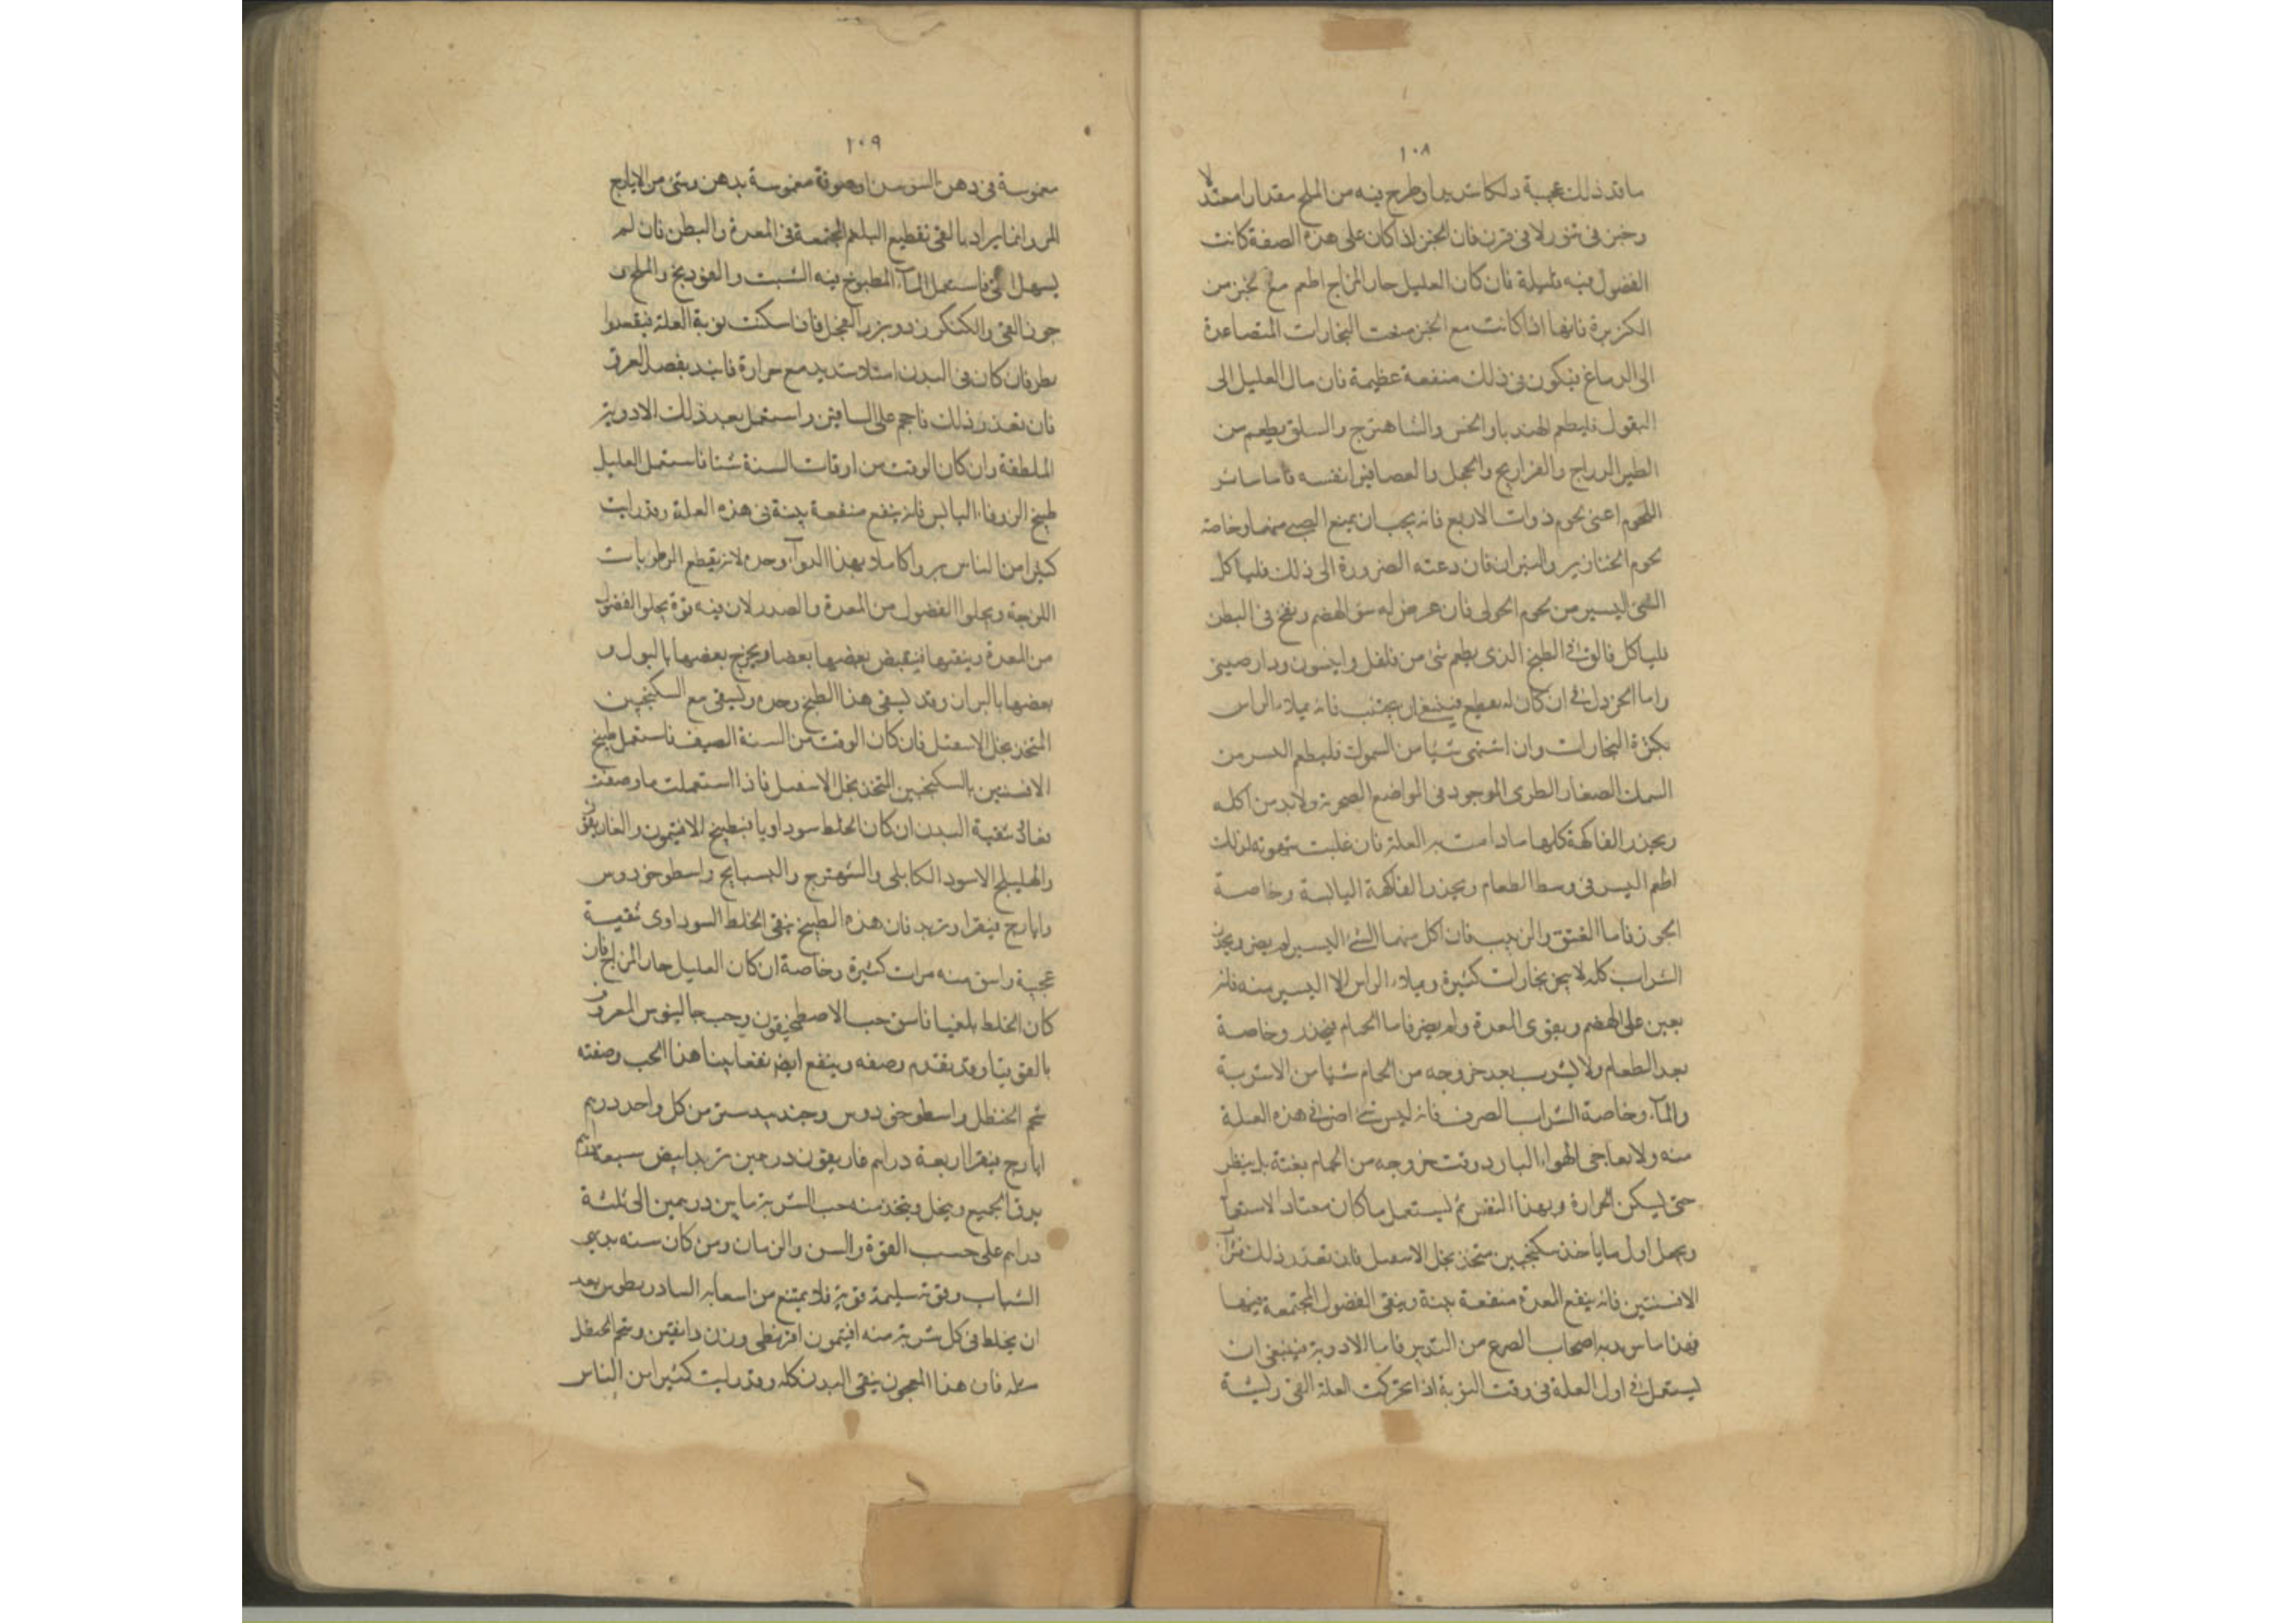 ١٠٨
ما قد ذلك عجبة دلكا شديدا وطرح فيه من الملح مقدارا معتدلا
وخبز في تنور لا في فرن فان الخبز اذا كان على هذه الصفة كانت
الفضول فيه قليلة فان كان العليل حار المزاج اطعم مع خبز من
الكزبرة فانها اذا كانت مع الخبز منعت البخارات المتصاعدة
الى الدماغ فيكون في ذلك منفعة عظيمة فان مال العليل الى
البقول فليطعم الهندبا والخس والشاهترج والسلق يطعم من
الطير الدراج والفراريج والحجل والعصافير انفسه فاما سائر
اللحوم اعنى لحوم ذوات الاربع فانه يجب ان يمنع الصبي منها وخاصة
لحوم الخنازير والتيران فان دعته الضرورة الى ذلك فلياكل
الشئ اليسير من لحوم الحولى فان عرض له سق الهضم ونفخ في البطن
فلياكل فالق في الطبيخ الذى يطعم شئ من فلفل وانيسون ودار صينى
واما الخردل في ان كان له تقطيع فينبغى ان يجتنب فانه يملاء الراس
بكثرة البخارات وان اشتهى شيئا من السموك فليطعم اليسير من
السمك الصغار الطرى الموجود في المواضع الصخرية ولابد من اكله
ويحذر الفاكهة كلها ما دامت به العلة فان غلبت شهوته لذلك
اطعم اليسر في وسط الطعام ويحذر الفاكهة اليابسة وخاصة
الجوز فاما الفستق والزبيب فان اكل منهما الشئ اليسير لم يضر ويحذر
الشراب كله لا يبخر بخارات كثيرة ويملاء الراس الا اليسير منه فانه
يعين على الهضم ويقوى المعدة ولم يضر فاما الحمام فيحذر وخاصة
بعد الطعام ولا يشرب بعد خروجه من الحمام شيئا من الاشربة
والمآء وخاصة الشراب الصرف فانه ليس شئ اضر في هذه العلة
منه ولا يفاجى الهواء البارد وقت خروجه من الحمام بغتة بل ينظر
حتى ليسكن الحرارة ويهذا النفس ثم ليستعمل ما كان معتاد الاستعما
ويجعل اول ما ياخذ سكنجبين متخذ بخل الاسقيل فان تعذر ذلك فشرآ
الافسنتين فانه ينفع المعدة منفعة بينة وينقى الفضول المجتمعة فيها
فهذا ما يدبر به اصحاب الصرع من التدبير فاما الادوية فينبغى ان
ليستعمل في اول العلة في وقت النوبة اذا تحركت العلة القئ ريشة
١٠٩
مغموسة في دهن السوسن او صوفة مغموسة بدهن وشئ من الايارج
المر وانما يراد بالقئ تقطيع البلغم المجتمعة في المعدة والبطن فان لم
يسهل القئ فاستعمل المآء المطبوخ فيه الشبت والفوديج والملح و
جوز القئ والكنكرزد وبزر الفجل فاذا سكنت نوبة العلة فيقعدوا
بطر فان كان في البدن امتلا شديد مع حرارة فابتد بفصد العرق
فان تعذر ذلك فاحجم على الساقين واستعمل بعد ذلك الادوية
الملطفة وان كان الوقت من اوقات السنة شتا فاستعمل العليل
طبيخ الزوفاء اليابس فانه ينفع منفعة بينة في هذه العلة وقد رايت
كثيرا من الناس بروا كاملا بهذا الدوآء وحده لانه يقطع الرطوبات
اللزجة ويجلوا الفضول من المعدة والصدر لان فيه قوة يجلوا الفضول
من المعدة وينقيها فيقبض بعضها بعضا ويخرج بعضها بالبول و
بعضها بالبراز وقد ليسقى هذا الطبيخ وحده وليسقى مع السكنجبين
المتخذ بخل الاسقيل فان كان الوقت من السنة الصيف فاستعمل طبيخ
الافسنتين بالسكنجبين المتخذ بخل الاسقيل فاذا استعملت ما وصفت
فعاد تنقية البدن ان كان الخلط سوداويا فبطبيخ الافتيمون والغاريقون
والهليلج الاسود الكابلى والشهترج والبسبايج واسطوخودوس
وايارج فيقرا وتربد فان هذه الطبيخ ينقى الخلط السوداوى تنقيسة
عجيبة واسق منه مرات كثيرة وخاصة ان كان العليل حار المزاج فان
كان الخلط بلغميا فاسق حب الاصطمخيقون وحب جالينوس المعروف
بالقوقيا وقد تقدم وصفه وينفع ايضا نفعا بينا هذا الحب وصفته
شحم الحنظل واسطوخودوس وجندبيدستر من كل واحد درهم
ايارج فيقرا اربعة دراهم غاريقون درهمين تربد ابيض سبعة دراهم
يدق الجميع وينخل ويتخذ منه حب الشربة ما بين درهمين الى ثلثة
دراهم على حسب القوة والسن والزمان ومن كان سنه
الشباب وقوته سليمة قوية فلا يمتنع من اسعابه السادريطوس بعد
ان يخلط في كل شربة منه افتيمون اقريطى وزن دانقين وشحم الحنظل
مثله فان هذا المعجون ينقى البدن كله وقد رايت كثيرا من الناس